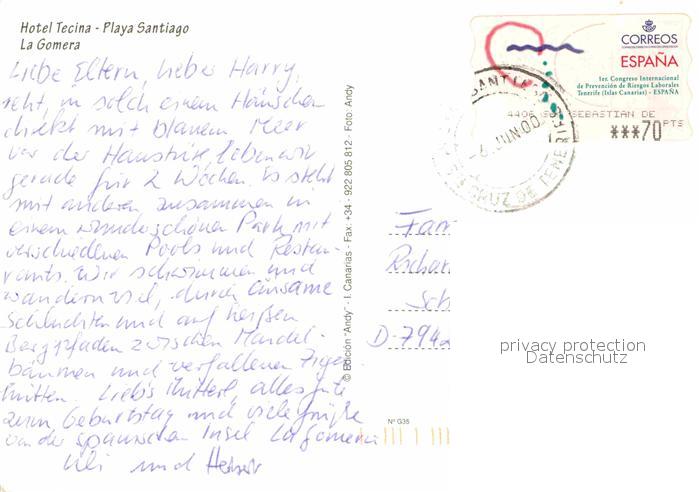 Hotel Tecina - Playa Santiago
La Gomera
Liebe Eltern, lieber Harry,
seht, in solch einem Häuschen
direkt mit blauem Meer
vor der Haustüre, leben wir
gerade für 2 Wochen. Es steht
mit anderen zusammen in
einem wunderschönen Park mit
verschiedenen Pools und Restau-
rants. Wir schwimmen und
wandern viel, durch einsame
Schluchten und auf heißen
Bergpfaden zwischen Mandel-
bäumen und verfallenen Ziegen-
hütten. Liebs Mutterl, alles gute
zum Geburtstag und viele Grüße
von der spanischen Insel La Gomera
Uli und
© Edición "Andy" - I. Canarias - Fax: +34 - 922 805 812 - Foto: Andy
CORREOS
ESPAÑA
1er. Congreso Internacional
de Prevención de Riesgos Laborales
Tenerife (Islas Canarias) - ESPAÑA
SEBASTIAN DE
PTS
***70
JUN 00
CRUZ DE TENERIFE
Fam
Sch
D-794
privacy protection
Datenschutz
Nº G35